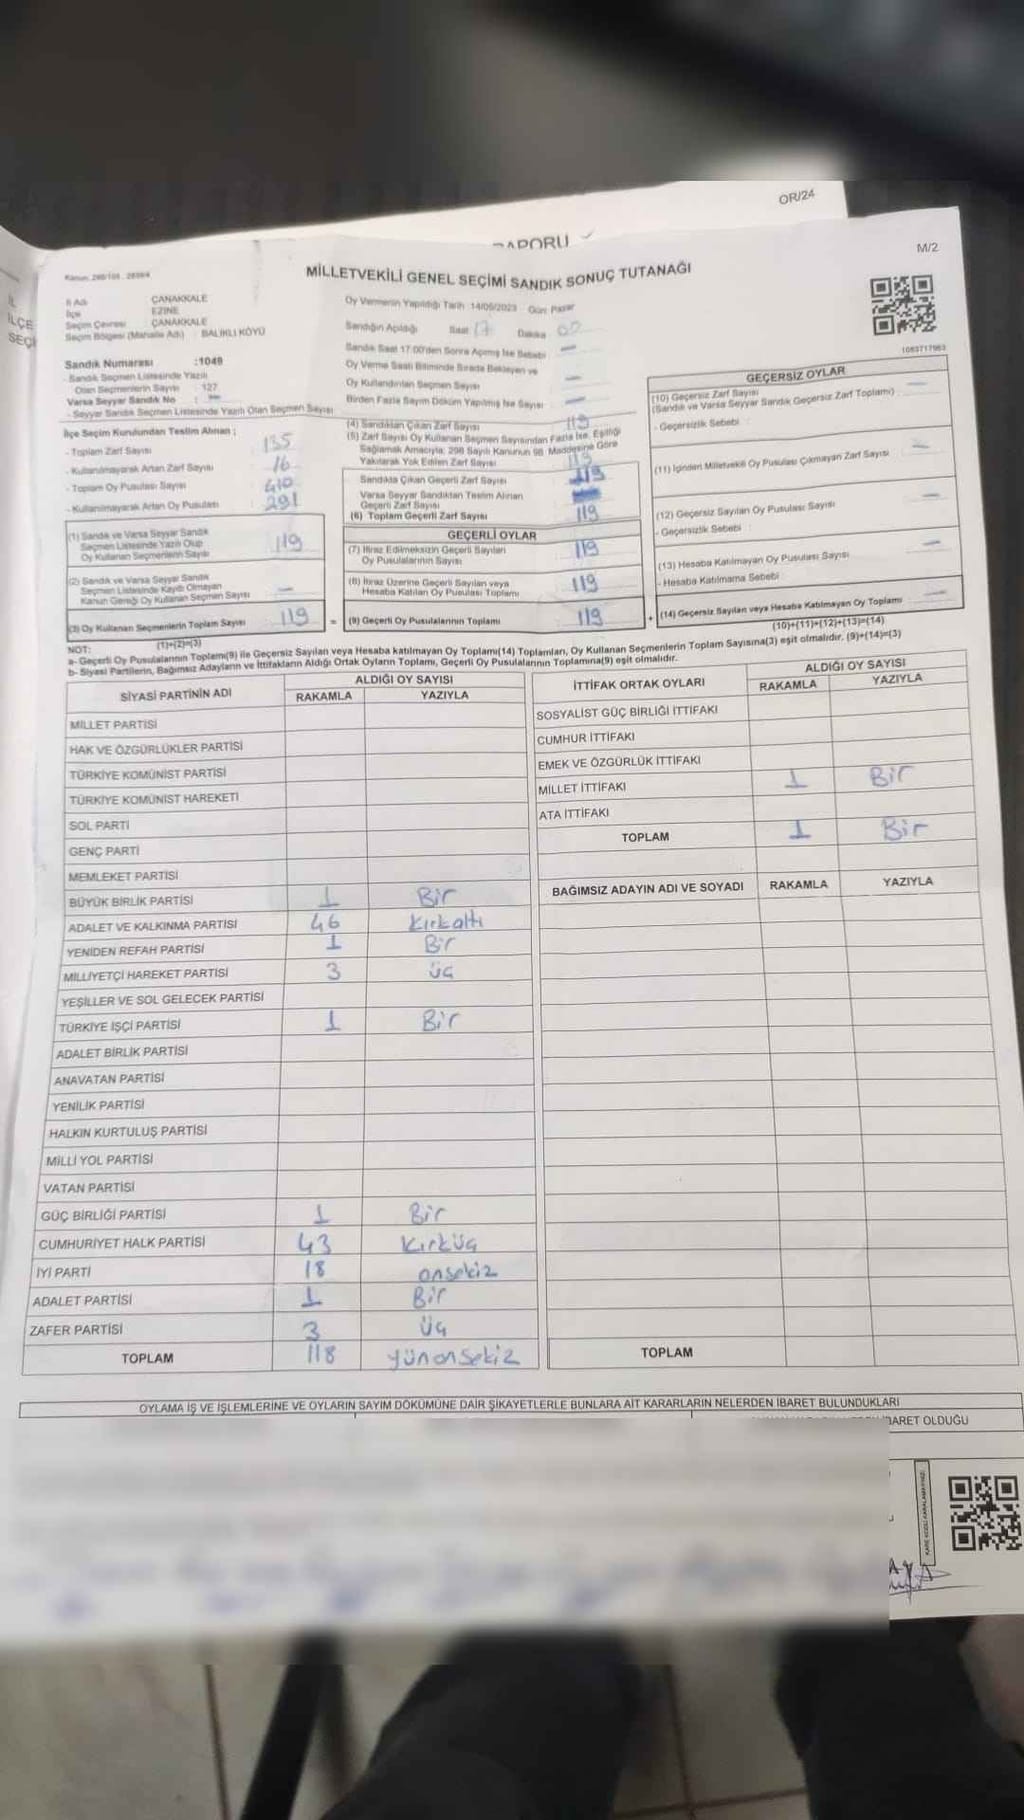 OR/24
RAPORU
M/2
MİLLETVEKİLİ GENEL SEÇİMİ SANDIK SONUÇ TUTANAĞI
İl Adı : ÇANAKKALE
İlçe : EZİNE
Seçim Çevresi : ÇANAKKALE
Seçim Bölgesi (Mahalle Adı) : BALIKLI KÖYÜ
Oy Vermenin Yapıldığı Tarih :14/05/2023 Gün: Pazar
Sandığın Açıldığı Saat 17 Dakika 00
Sandık Saat 17:00'den Sonra Açılmış İse Sebebi —
Oy Verme Saati Bitiminde Sırada Bekleyen ve
Oy Kullandırılan Seçmen Sayısı —
Birden Fazla Sayım Döküm Yapılmış İse Sayısı —
Sandık Numarası :1049
- Sandık Seçmen Listesinde Yazılı
Olan Seçmenlerin Sayısı : 127
Varsa Seyyar Sandık No : —
- Seyyar Sandık Seçmen Listesinde Yazılı Olan Seçmen Sayısı
İlçe Seçim Kurulundan Teslim Alınan ;
- Toplam Zarf Sayısı 135
- Kullanılmayarak Artan Zarf Sayısı 16
- Toplam Oy Pusulası Sayısı 410
- Kullanılmayarak Artan Oy Pusulası 291
(1) Sandık ve Varsa Seyyar Sandık
Seçmen Listesinde Yazılı Olup
Oy Kullanan Seçmenlerin Sayısı 119
(2) Sandık ve Varsa Seyyar Sandık
Seçmen Listesinde Kayıtlı Olmayan
Kanun Gereği Oy Kullanan Seçmen Sayısı —
(3) Oy Kullanan Seçmenlerin Toplam Sayısı 119
(1)+(2)=(3)
(4) Sandıktan Çıkan Zarf Sayısı 119
(5) Zarf Sayısı Oy Kullanan Seçmen Sayısından Fazla İse, Eşitliği
Sağlamak Amacıyla; 298 Sayılı Kanunun 98. Maddesine Göre
Yakılarak Yok Edilen Zarf Sayısı
Sandıkta Çıkan Geçerli Zarf Sayısı 119
Varsa Seyyar Sandıktan Teslim Alınan
Geçerli Zarf Sayısı
(6) Toplam Geçerli Zarf Sayısı 119
GEÇERLİ OYLAR
(7) İtiraz Edilmeksizin Geçerli Sayılan
Oy Pusulalarının Sayısı 119
(8) İtiraz Üzerine Geçerli Sayılan veya
Hesaba Katılan Oy Pusulası Toplamı 119
= (9) Geçerli Oy Pusulalarının Toplamı 119
1083717963
GEÇERSİZ OYLAR
(10) Geçersiz Zarf Sayısı —
(Sandık ve Varsa Seyyar Sandık Geçersiz Zarf Toplamı)
- Geçersizlik Sebebi :
(11) İçinden Milletvekili Oy Pusulası Çıkmayan Zarf Sayısı —
(12) Geçersiz Sayılan Oy Pusulası Sayısı —
- Geçersizlik Sebebi :
(13) Hesaba Katılmayan Oy Pusulası Sayısı —
- Hesaba Katılmama Sebebi
+ (14) Geçersiz Sayılan veya Hesaba Katılmayan Oy Toplamı —
(10)+(11)+(12)+(13)=(14)
NOT:
a- Geçerli Oy Pusulalarının Toplamı(9) ile Geçersiz Sayılan veya Hesaba katılmayan Oy Toplamı(14) Toplamları, Oy Kullanan Seçmenlerin Toplam Sayısına(3) eşit olmalıdır. (9)+(14)=(3)
b- Siyasi Partilerin, Bağımsız Adayların ve İttifakların Aldığı Ortak Oyların Toplamı, Geçerli Oy Pusulalarının Toplamına(9) eşit olmalıdır.
SİYASİ PARTİNİN ADI
ALDIĞI OY SAYISI
RAKAMLA YAZIYLA
MİLLET PARTİSİ
HAK VE ÖZGÜRLÜKLER PARTİSİ
TÜRKİYE KOMÜNİST PARTİSİ
TÜRKİYE KOMÜNİST HAREKETİ
SOL PARTİ
GENÇ PARTİ
MEMLEKET PARTİSİ
BÜYÜK BİRLİK PARTİSİ 1 Bir
ADALET VE KALKINMA PARTİSİ 46 Kırkaltı
YENİDEN REFAH PARTİSİ 1 Bir
MİLLİYETÇİ HAREKET PARTİSİ 3 üç
YEŞİLLER VE SOL GELECEK PARTİSİ
TÜRKİYE İŞÇİ PARTİSİ 1 Bir
ADALET BİRLİK PARTİSİ
ANAVATAN PARTİSİ
YENİLİK PARTİSİ
HALKIN KURTULUŞ PARTİSİ
MİLLİ YOL PARTİSİ
VATAN PARTİSİ
GÜÇ BİRLİĞİ PARTİSİ 1 Bir
CUMHURİYET HALK PARTİSİ 43 Kırküç
İYİ PARTİ 18 onsekiz
ADALET PARTİSİ 1 Bir
ZAFER PARTİSİ 3 Üç
TOPLAM 118 yünonsekiz
İTTİFAK ORTAK OYLARI
ALDIĞI OY SAYISI
RAKAMLA YAZIYLA
SOSYALİST GÜÇ BİRLİĞİ İTTİFAKI
CUMHUR İTTİFAKI
EMEK VE ÖZGÜRLÜK İTTİFAKI
MİLLET İTTİFAKI 1 Bir
ATA İTTİFAKI
TOPLAM 1 Bir
BAĞIMSIZ ADAYIN ADI VE SOYADI RAKAMLA YAZIYLA
TOPLAM
OYLAMA İŞ VE İŞLEMLERİNE VE OYLARIN SAYIM DÖKÜMÜNE DAİR ŞİKAYETLERLE BUNLARA AİT KARARLARIN NELERDEN İBARET BULUNDUKLARI
İBARET OLDUĞU